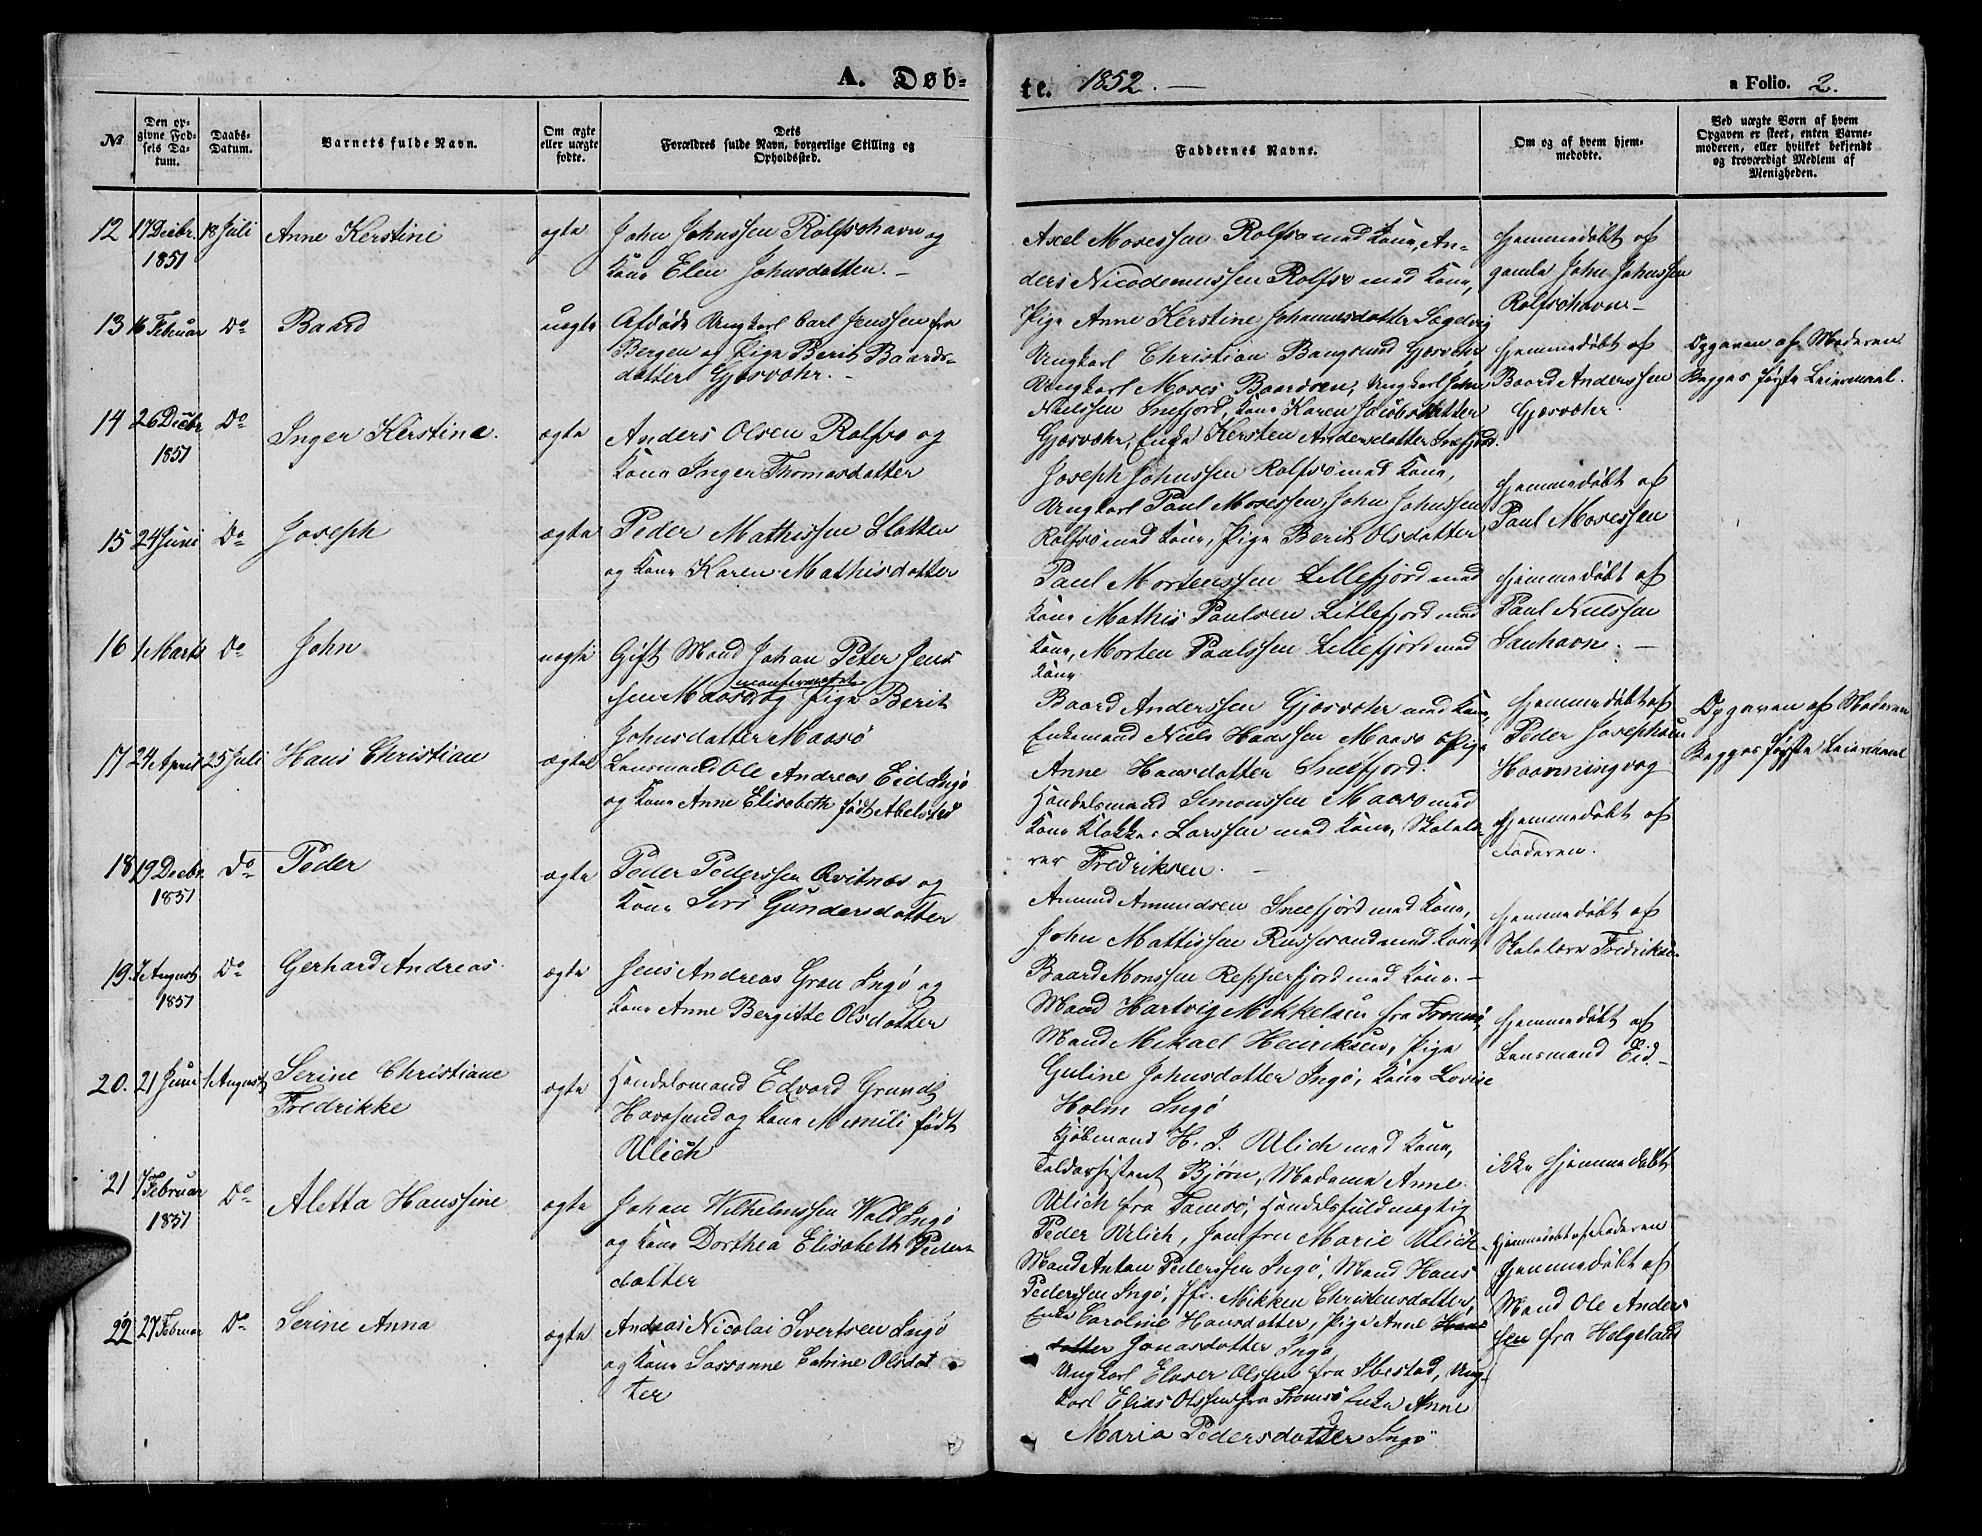 A. Døb=
te. 1852. —
a Folio. 2.
№
Den op=
givne Fød=
sels Da=
tum.
Daabs=
Datum.
Barnets fulde Navn.
Om ægte
eller uægte
fødte.
Dets
Forældres fulde Navn, borgerlige Stilling og
Opholdssted.
Faddernes Navne.
Om og af hvem hjem=
medøbte.
Ved uægte Børn af hvem
Opgaven er skeet, enten Barne=
moderen, eller hvilket bekjendt
og troværdigt Medlem af
Menigheden.
12 17 Decbr. 1851 18 Juli Anne Kerstine ægte John Johnssen Rolfsøhavn og
Kone Elen Johnsdatter. —
Axel Mosessen Rolfsø med Kone, An=
ders Nicodemussen Rolfsø med Kone,
Pige Anne Kerstine Johannesdatter
Hjemmedøbt af
gamle John Johnssen
Rolfsøhavn —
13 16 Februar Do Baard uægte Afdøde Ungkarl Carl Jenssen fra
Bergen og Pige Berit Baards=
datter Gjøsvær. —
Ungkarl Christian Gjøsvær
Ungkarl Moses Baardsen, Ungkarl John
Nielssen Snefjord, Kone Karen Jacobsdatter
Gjøsvær, Enke Kersten Andersdatter Snefjord.
Hjemmedøbt af
Baard Anderssen
Gjøsvær.
Opgaven af Moderen
Begges første Leiermaal.
14 26 Decbr 1851 Do Inger Kerstine. ægte Anders Olsen Rolfsø og
Kone Inger Thomasdatter
Joseph Johnssen Rolfsø med Kone,
Ungkarl Paul Mosessen, John Johnssen
Rolfsø med Kone, Pige Berit Olsdatter
Hjemmedøbt af
Paul Mosessen
15 24 Juni Do Joseph ægte Peder Mathissen Slotten
og Kone Karen Mathisdatter
Paul Mortenssen Lillefjord med
Kone Mathis Paulsen Lillefjord med
Kone, Morten Paulssen Lillefjord med
Kone
Hjemmedøbt af
Paul Nielssen
Sanhavn. —
16 1 Marts Do John uægte Gift Mand Johan Peter Jens
sen Maasø og Pige Berit
Johnsdatter Maasø
Baard Anderssen Gjøsvær med Kone,
Enkemand Niels Hanssen Maasø Pige
Anne Hansdatter Snefjord.
Hjemmedøbt af
Peder Josephsen
Havningvag
Opgaven af Moderen
Begges første Leiermaal
17 24 April 25 Juli Hans Christian ægte Lensmand Ole Andreas Eid Ingø
og Kone Anne Elisabeth født Abelsted
Handelsmand Simonssen Maasø med
Kone Klokker Larssen med Kone, Skolelæ
rer Fredriksen. —
Hjemmedøbt af
Faderen.
18 19 Decbr. 1851 Do Peder ægte Peder Pederssen Qvitnæs og
Kone Siri Gundersdatter
Amund Amundsen Snefjord med Kone,
John Mattissen Russesand med Kone
Baard Monssen Repperfjord med Kone. —
Hjemmedøbt af
Skolelærer Fredriksen
19. 7 August 1851 Do Gerhard Andreas. ægte Jens Andreas Gran Ingø og
Kone Anne Bergitte Olsdatter
Mand Hartvig Mikkelsen fra Tromsø,
Mand Mikael Henriksen, Pige
Guline Johnsdatter Ingø, Kone Lovise
Holm Ingø
Hjemmedøbt af
Lensmand Eid —
20. 21 Juni 1 August Serine Christiane
Fredrikke ægte Handelsmand Edvard Grundt
Havøsund og Kone M. Emili født
Ulich
Kjøbmand H. J. Ulich med Kone,
Toldassistent Bjørn, Madame Anne
Ulich fra Tamsø, Handelsfuldmægtig
Peder Ulich, Jomfru Marie Ulich
ikke hjemmedøbt
21 7 Februar 1851 Do Aletta Hanssine ægte Johan Wilhelmssen Wold Ingø
og Kone Dorthea Elisabeth Peders
datter
Mand Anton Pederssen Ingø, Mand Hans
Pederssen Ingø, Mikken Christensdatter,
Enke Caroline Hansdatter, Pige Anne Hans
datter Jonasdatter Ingø
Hjemmedøbt af Faderen
22 27 Februar Do Serine Anna ægte Andreas Nicolai Sivertsen Ingø
og Kone Sossanne Catrine Olsdat
ter
Ungkarl Elaser Olssen fra Ibestad, Ung=
karl Elias Olssen fra Tromsø Enke Anne
Maria Pedersdatter Ingø
Hjemmedøbt af
Mand Ole Anders
sen fra Helgeland